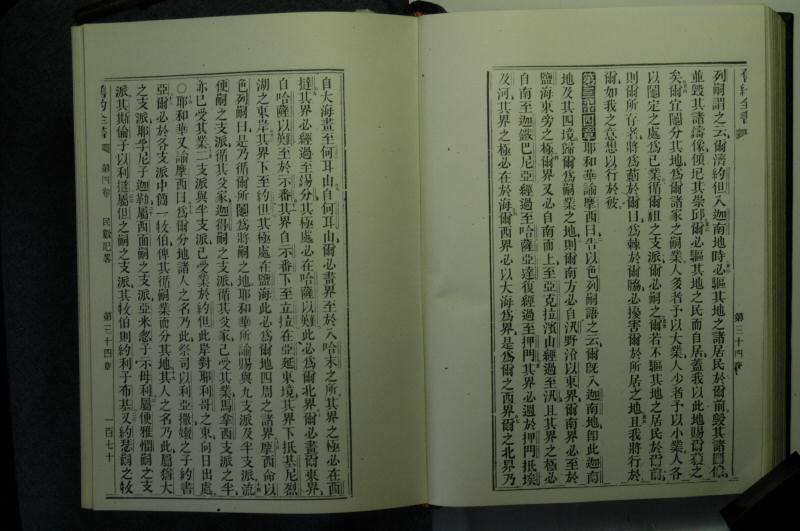 列嗣謂之云爾濟約但入迦南地時必驅其地之諸居民於爾前毀其諸圖像
並毀其諸鑄像傾圮其崇邱爾必驅其地之民而自居蓋我以此地賜爾為業之
矣爾宜鬮分其地為爾諸家之嗣業人多者予以大業人少者予以小業人各
以鬮定之處為己業循爾祖之支派爾必嗣之爾若不驅其地之居民於爾前
則爾所存者將為莿於爾目為棘於爾脇必擾害爾於所居之地且我將行於
爾如我之意想以行於彼
第三十四章耶和華諭摩西曰告以色列嗣語之云爾旣入迦南地卽此迦南
地及其四境歸爾為嗣業之地則爾南方必自汛野沿以東界爾南界必至於
鹽海東旁之極爾界又必自南而上至亞克拉濱山經過至汛且其界之極必
自南至迦鐵巴尼亞經過至哈薩亞達復經過至押門其界必週於押門抵埃
及河其界之極必在於海爾西界必以大海為界是為爾之西界爾之北界乃
第三十四章
自大海畫至何耳山自何耳山爾必畫界至於入哈末之所其界之極必在西
撻其界必經過至錫分其極處必在哈薩以難此必為爾北界爾必畫爾東界
自哈薩以難至於示番其界自示番下至立拉在亞延東境其界下抵基尼烈
湖之東岸其界下至約但其極處在鹽海此必為爾地四周之諸界摩西命以
色列嗣曰是乃循爾所鬮為將嗣之地耶和華所諭賜與九支派及半支派流
便嗣之支派循其父家迦得嗣之支派循其父家已受其業馬拿西支派之半
亦已受其業二支派與半支派已受業於約但此岸對耶利哥之東向日出處
○耶和華又諭摩西曰為爾分地諸人之名乃此祭司以利亞撒嫩之子約書
亞爾必於各支派中簡一牧伯俾其循嗣業而分其地其人之名乃此屬猶大
之支派耶孚尼子迦勒屬西面嗣之支派亞米忽子示母利屬便雅憫嗣之支
派其斯倫子以利撻屬但之嗣之支派其牧伯則約利子布基又約瑟嗣之牧
舊約全書
第四卷
民數記畧
第三十四章
一百七十